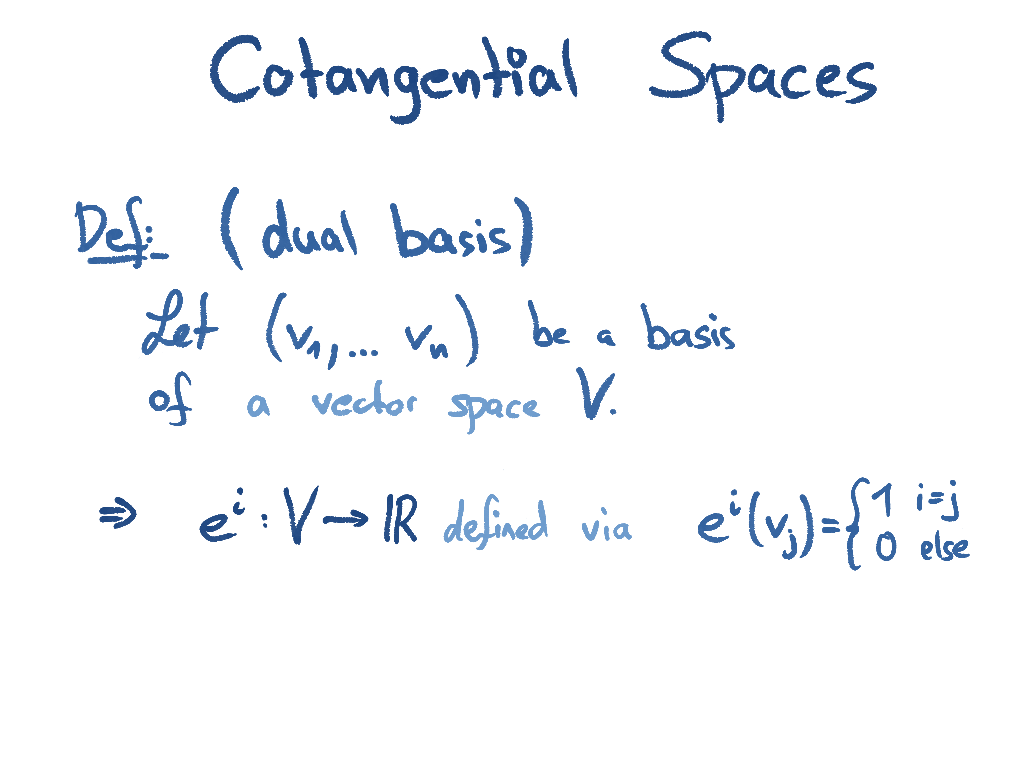 Cotangential Spaces
Def: (dual basis)
Let (v₁,... vₙ) be a basis
of a vector space V.
⇒ eⁱ : V → ℝ defined via eⁱ(vⱼ) = { 1 i=j
0 else